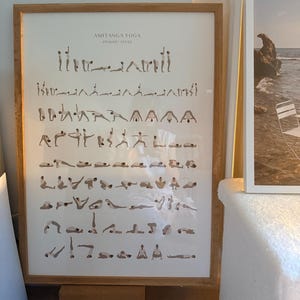 ASHTANGA YOGA
PRIMARY SERIES